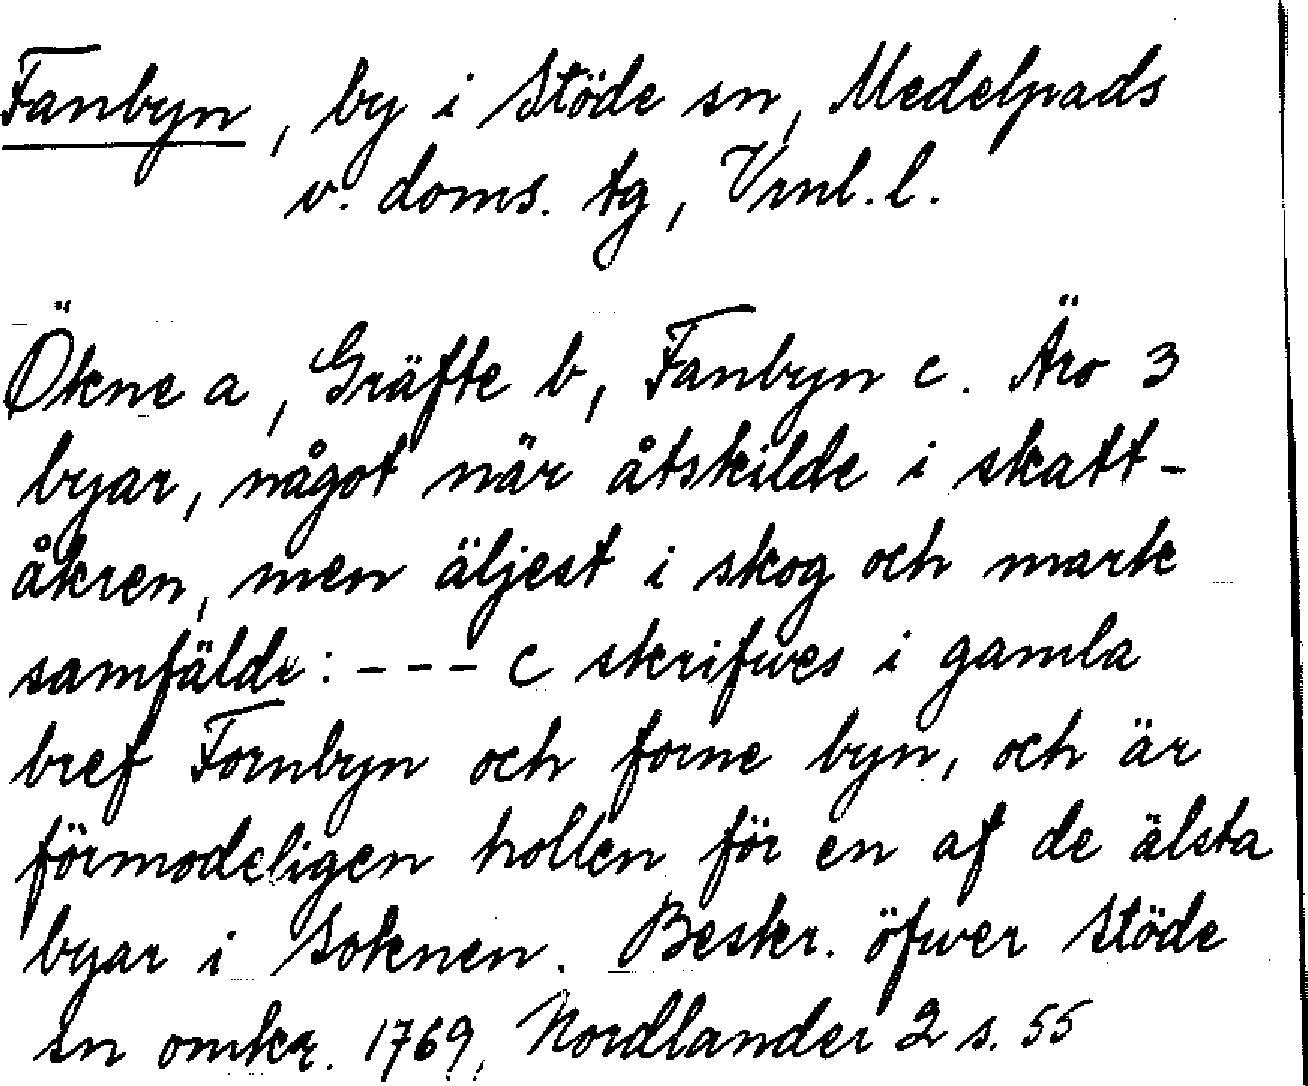 Fanbyn, by i Stöde sn, Medelpads
v. doms. tg, Vrnl. l.
Ökne a, Gräfte b, Fanbyn c. Äro 3
byar, något när åtskilde i skatt-
åkren, men äljest i skog och mark
samfälde: - - - c skrifwes i gamla
bref Fornbyn och forne byn, och är
förmodeligen hollen för en af de älsta
byar i Soknen. Beskr. öfwer Stöde
sn omkr. 1769, Nordlander 2 s. 55